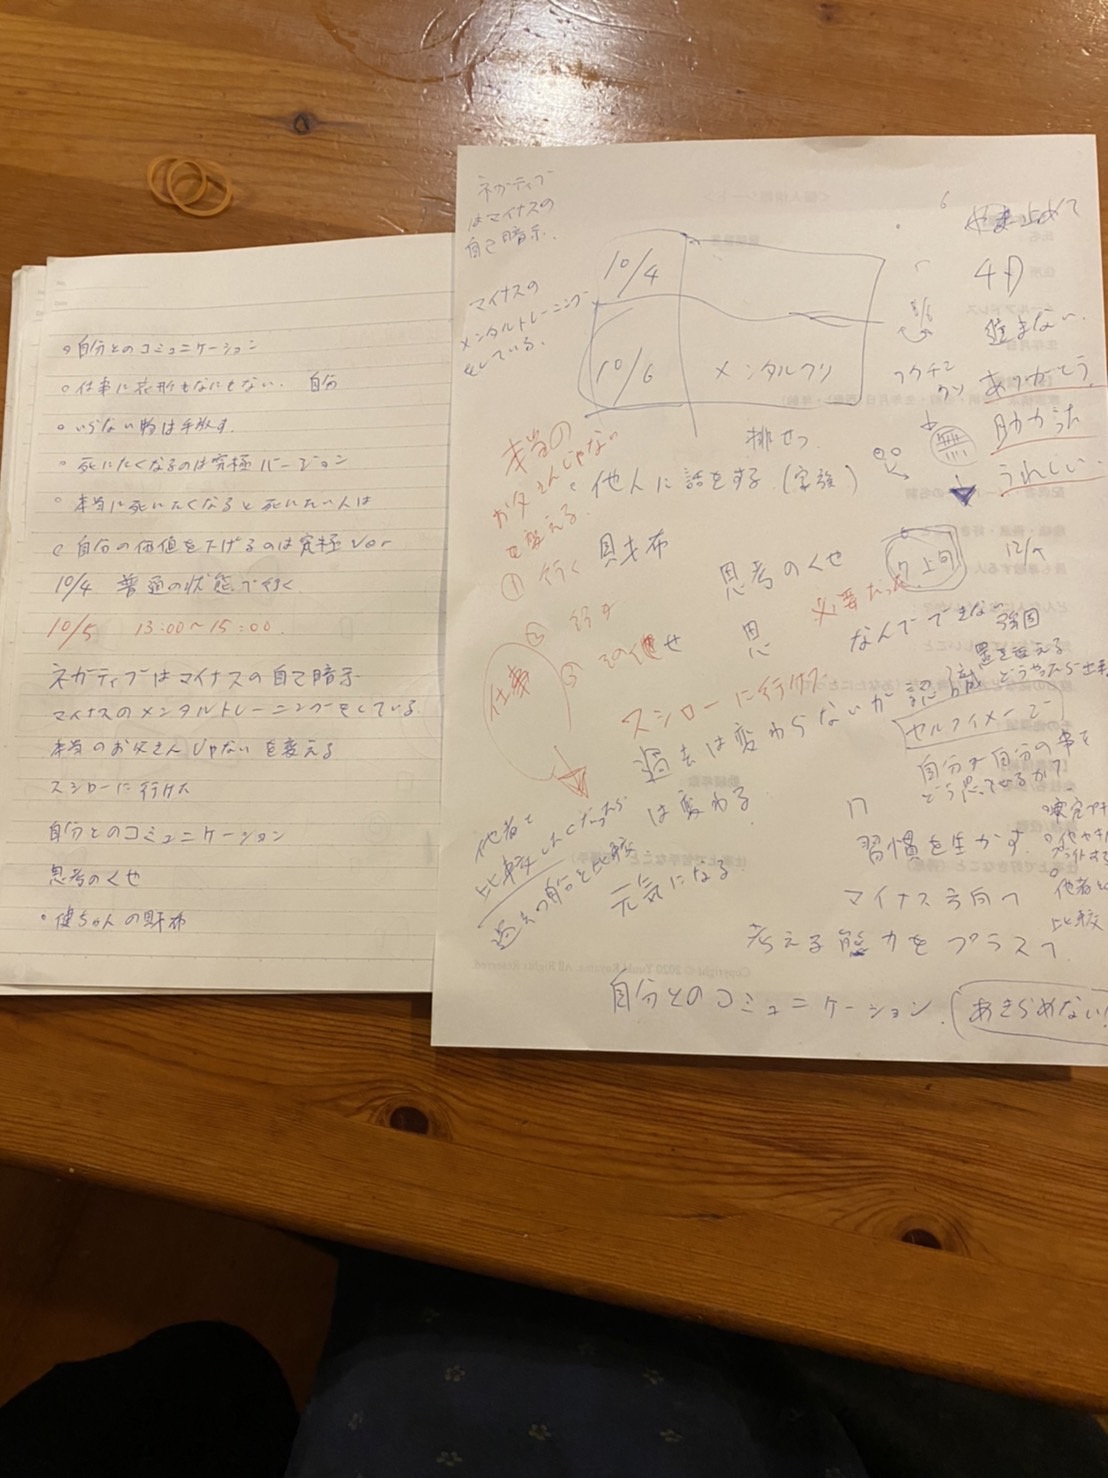 自分とのコミュニケーション
仕事に衣形もなにもない. 自分
いらない物は手放す.
死にたくなるのは究極バージョン
本当に死いたくなると死にたい人は
自分の価値を下げるのは究極ver
10/4 普通の状態で行く
10/5 13:00〜15:00.
ネガティブはマイナスの自己暗示
マイナスのメンタルトレーニングをしている
本当のお父さんじゃないを変える
スシローに行けた
自分とのコミュニケーション
思考のくせ
健ちゃんの財布
ネガティブ
はマイナスの
自己暗示.
マイナスの
メンタルトレーニング
をしている.
10/4
10/6 メンタルフリ
止めて
4月
進まない.
ワクチン
ありがとう
無 助かった
うれしい
排せつ
本当の
お父さんじゃない
を変える.
他人に話をする.(家族)
① 行く 財布
思考のくせ
7上旬
必要だった
②
③ その他 せ
思
仕事
なんでできない
スシローに行けた
過去は変わらないが認識
は変わる.
セルフイメージ
自分が自分の事を
どう思ってせるか?
他者と
比較したくなったら
過去の自分と比較
元気になる
習慣を生かす.
マイナス方向へ
考える能力をプラスへ
他者と
比較
自分とのコミュニケーション.
あきらめない!